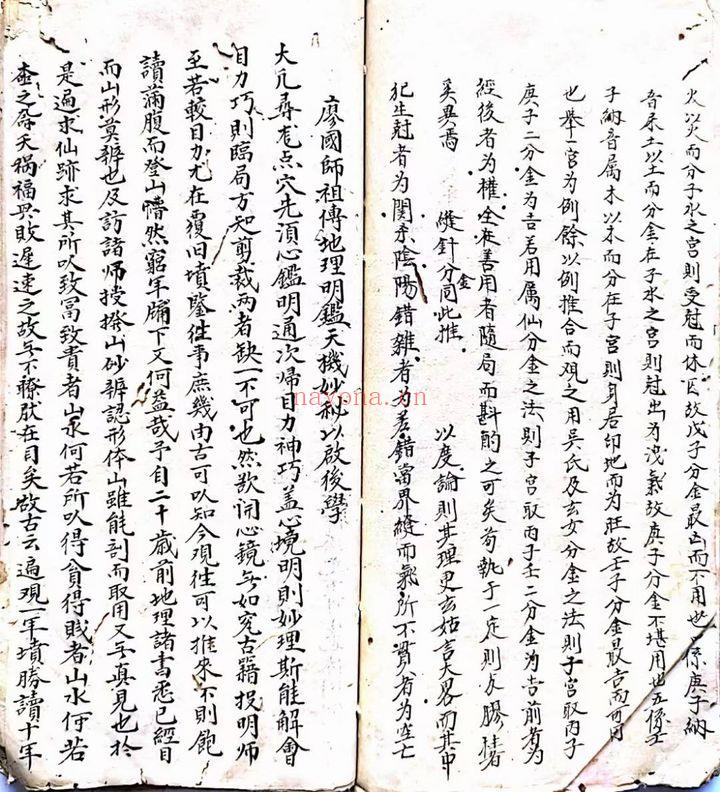 火以火而分子水之宮則受尅而休囚故戊子分金最凶而不用也一係庚子納
音屬土以土而分金在子水之宮則尅出为洩氣故庚子分金不堪用也五係壬
子納音属木以木而分在子宮則身居印地而为旺故壬子分金最吉而可用
也舉一宮为例餘以例推合而观之用吳氏及玄女分金之法則子宮取丙子
庚子二分金为吉若用属仙分金之法則子宮取丙子壬二分金为吉前者为
經後者为權全在善用者随局而斟酌之可矣苟執于一定則与膠柱者
奚異焉
縫針分金同此推
以度論則其理更玄姑言大畧而其中
犯生尅者为関杀陰陽錯雜者为差錯當界縫而氣所不貫者为空亡
廖國師祖傳地理明鑑天機妙秘以啟後學
大凡尋龙点穴先湏心鑑明通次歸目力神巧盖心境明則妙理斯能解會
目力巧則臨局方知剪裁两者缺一不可也然欲闲心鏡无如究古籍投明師
至若較目力尤在覆旧墳鑒徃事庶幾由古可以知今观徃可以推來不則飽
讀滿腹而登山懵然窮年牖下又何益哉予自二十歲前地理諸書悉已經目
而山形莫辨也及訪諸师授撥山砂辨認形体山雖能剖而取用又无真見也於
是遍求仙跡求其所以致富致貴者山水何若所以得貧得賎者山水何若
天祸福兴敗遲速之故无不瞭肰在目矣故古云遍观一年墳勝讀十年